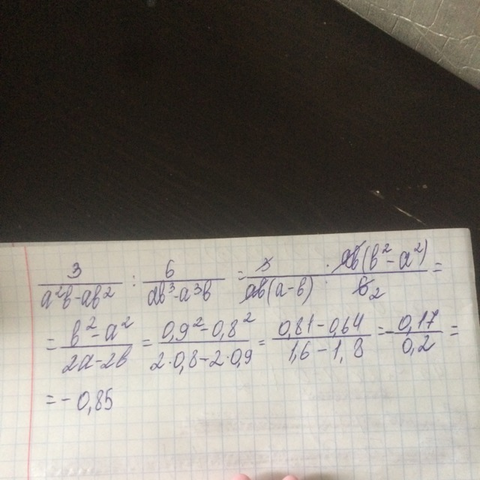 3/(a²b-ab²) : 6/(ab³-a³b) = 3/(ab(a-b)) · ab(b²-a²)/6 2 =
= (b²-a²)/(2a-2b) = (0,9²-0,8²)/(2·0,8-2·0,9) = (0,81-0,64)/(1,6-1,8) = -0,17/0,2 =
= -0,85